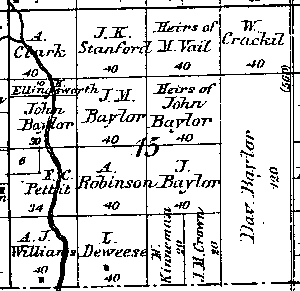 A.
Clark
40
J. K.
Stanford
40
Heirs of
M. Vail
40
W.
Crackil
40
Ellingsworth
10
John
Baylor
30
J. M.
Baylor
40
Heirs of
John
Baylor
40
15
6
F. C.
Pettit
34
A.
Robinson
40
J.
Baylor
40
Dav. Baylor
120
A. J.
Williams
40
L.
Deweese
40
W.
Kinneman
20
J. M. Crown
20